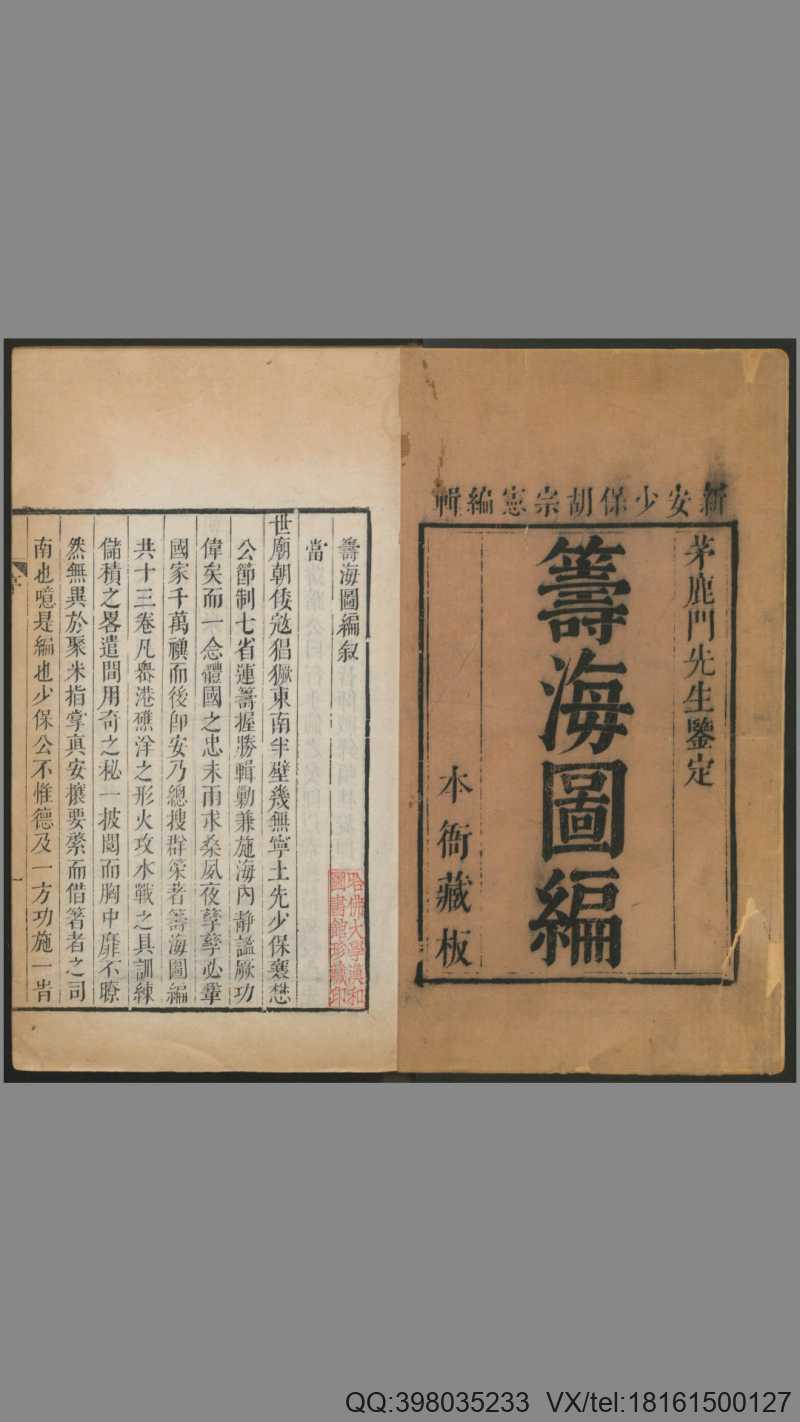 新安少保胡宗憲編輯
茅鹿門先生鑒定
籌海圖編
本衙藏板
籌海圖編叙
當
世廟朝倭寇猖獗東南半壁幾無寧土先少保襄懋
公節制七省運籌握勝輯勦兼施海內靜謐厥功
偉矣而一念體國之忠未雨求桑夙夜孳孳必鞏
國家千萬禩而後卽安乃總搜群筞著籌海圖編
共十三卷凡嶴港礁洋之形火攻水戰之具訓練
儲積之畧遣間用奇之秘一披閱而胸中靡不瞭
然無異於聚米指掌真安攘要䇿而借箸者之司
南也噫是編也少保公不惟德及一方功施一旹
序
一
哈佛大學漢和
圖書館珍藏印
QQ:398035233 VX/tel:18161500127